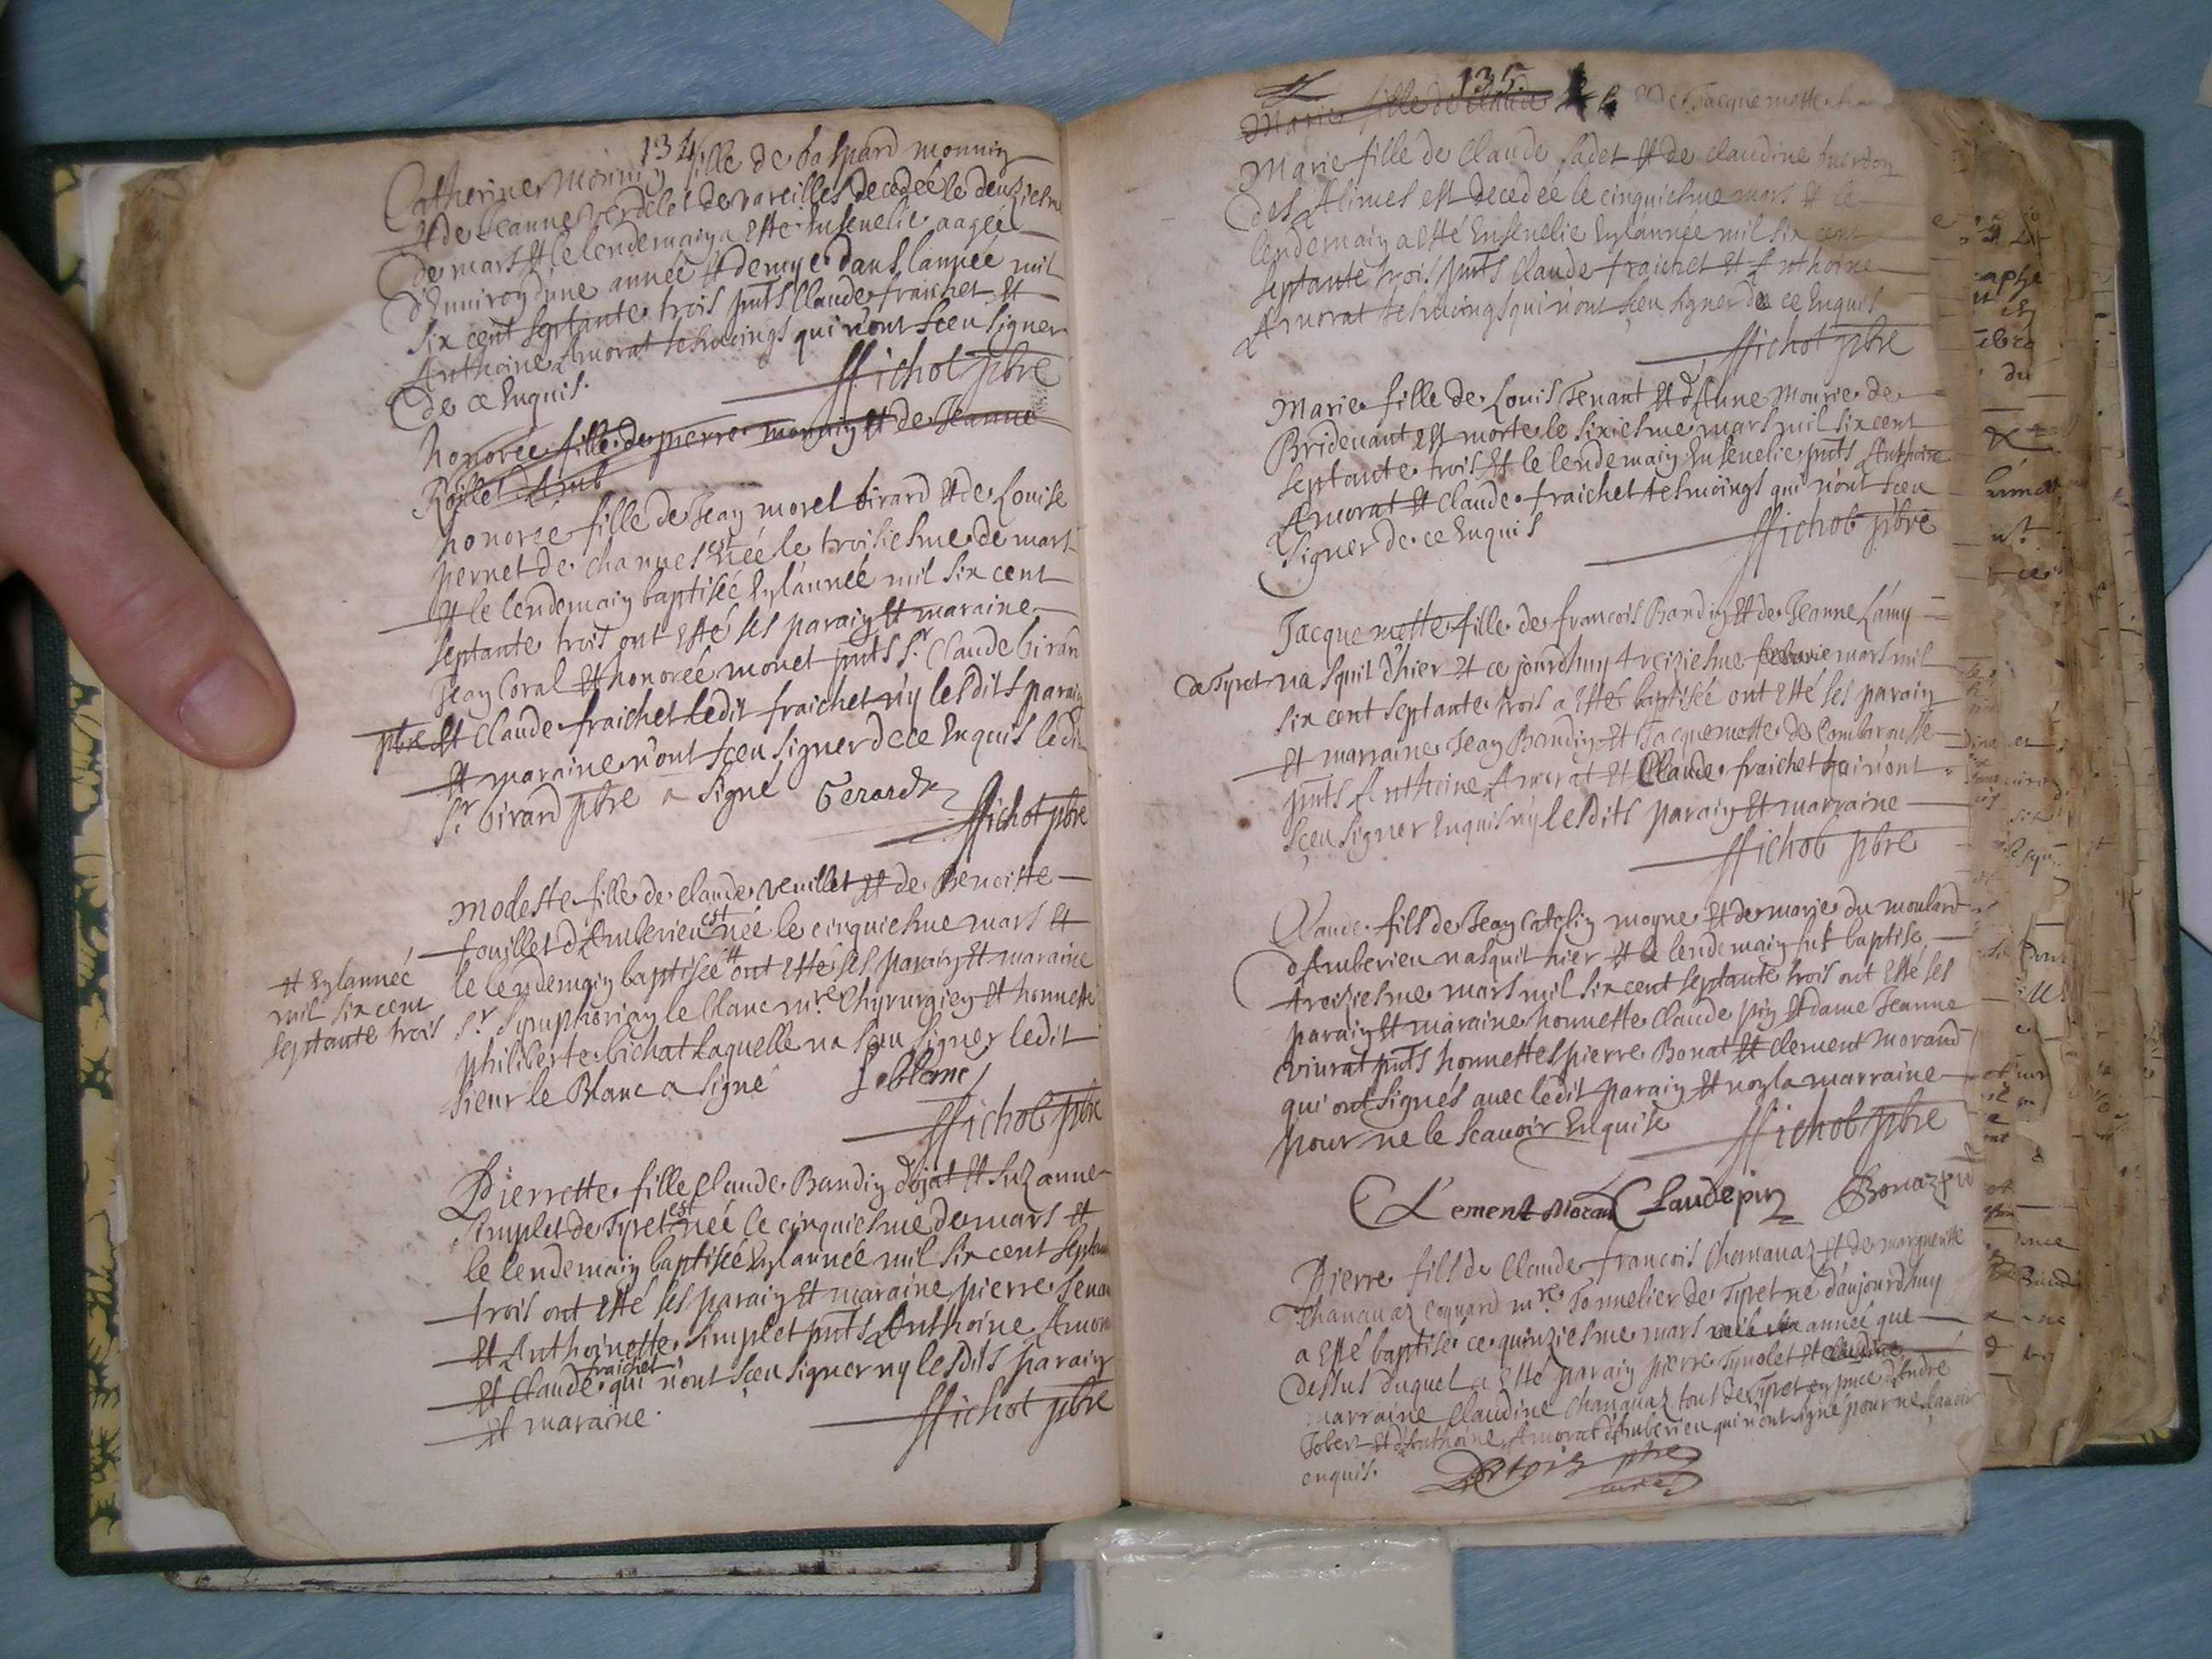 134
Catherine Monnin fille de Gaspard monnin
et de Jeanne Verdelet de vareilles decedeé le deuxiesme
de mars et le lendemain a esté ensevelie aageé
d'environ d'une année et demye dans lanneé mil
six cent septante trois pnts Claude fraichet et
Anthoine Amorat tesmoings qui n'ont sceu signer
de ce enquis.
ffichot pbre
honoreé fille de pierre monnin et de Jeanne
Roillet d'Amb
honoreé fille de Jean morel Girard et de Louise
pernet de chanues est neé le troisiesme de mars
et le lendemain baptiseé en l'anneé mil six cent
septante trois ont esté ses parain et maraine
Jean Coral et honoreé monet pnts Sr. Claude Girard
pbre et Claude fraichet ledit fraichet n'y lesdits parain
et maraine n'ont sceu signer de ce enquis ledit
Sr. Girard pbre a signé Gerard
ffichot pbre
Modeste fille de claude veuillet et de Benoiste
fouillet d'Amberieu est neé le cinquiesme mars et
le lendemain baptiseé et ont esté ses parain et maraine
et en lanneé
mil six cent
septante trois
Sr. Symphorian le blanc mre. Chyrurgien et honneste
philiberte bichat laquelle na sceu signer ledit
sieur le Blanc a signé Leblanc
ffichot pbre
Pierrette fille Claude Bandin dojat et Suzanne
Simplet de Tyret est neé le cinquiesme de mars et
le lendemain baptiseé en lanneé mil six cent septante
trois ont esté ses parain et maraine pierre Tenan
et Anthoinette Simplet pnts Anthoine Amora
et Claude fraichet qui n'ont sceu signer ny lesdits parain
et maraine.
ffichot pbre
135
Marie fille de Claude et de Jacquemette
Marie fille de Claude Cadet et de claudine
des Alimes est decedeé le cinquiesme mars et le
lendemain a esté ensevelie en l'anneé mil six cent
septante trois pnts Claude fraichet et Anthoine
Amorat tesmoings qui n'ont sceu signer de ce enquis
ffichot pbre
Marie fille de Louis Tenant et d'Anne Mourie de
Bridevant est morte le sixiesme mars mil six cent
septante trois et le lendemain ensevelie pnts Anthoine
Amorat et Claude fraichet tesmoings qui n'ont sceu
signer de ce enquis
ffichot pbre
Jacquemette fille de francois Bandin et de Jeanne Lamy
de Tyret nasquit d'hier et ce jourdhuy treiziesme mars mil
six cent septante trois a esté baptiseé ont esté ses parain
et marraine Jean Bandin et Jacquemette de Combarousse
pnts Anthoine Amorat et Claude fraichet qui n'ont
sceu signer enquis n'y lesdits parain et marraine
ffichot pbre
Claude fils de Jean Catelin moyne et de marie du moulard
d'Amberieu nasquit hier et le lendemain fut baptisé
treiziesme mars mil six cent septante trois ont esté ses
parain et maraine honneste Claude pin et dame Jeanne
vivrat pnts honnestes pierre Bonat et clement morand
qui ont signés avec ledit parain et non la marraine
pour ne le scavoir enquise
ffichot pbre
Clement Morand Claude pin
Pierre fils de Claude francois Chanavaz et de marguerite
Chanavaz coquard mre. Tonnelier de Tyret né d'aujourdhuy
a esté baptisé ce quinziesme mars mil six année que
dessus duquel a esté parain pierre Tynolet et claudine
marraine Claudine Chanavaz tous de Tyret en pnce d'Andre
Jobert et d'Anthoine Amorat d'Amberieu qui n'ont signé pour ne scavoir
enquis.
pbre